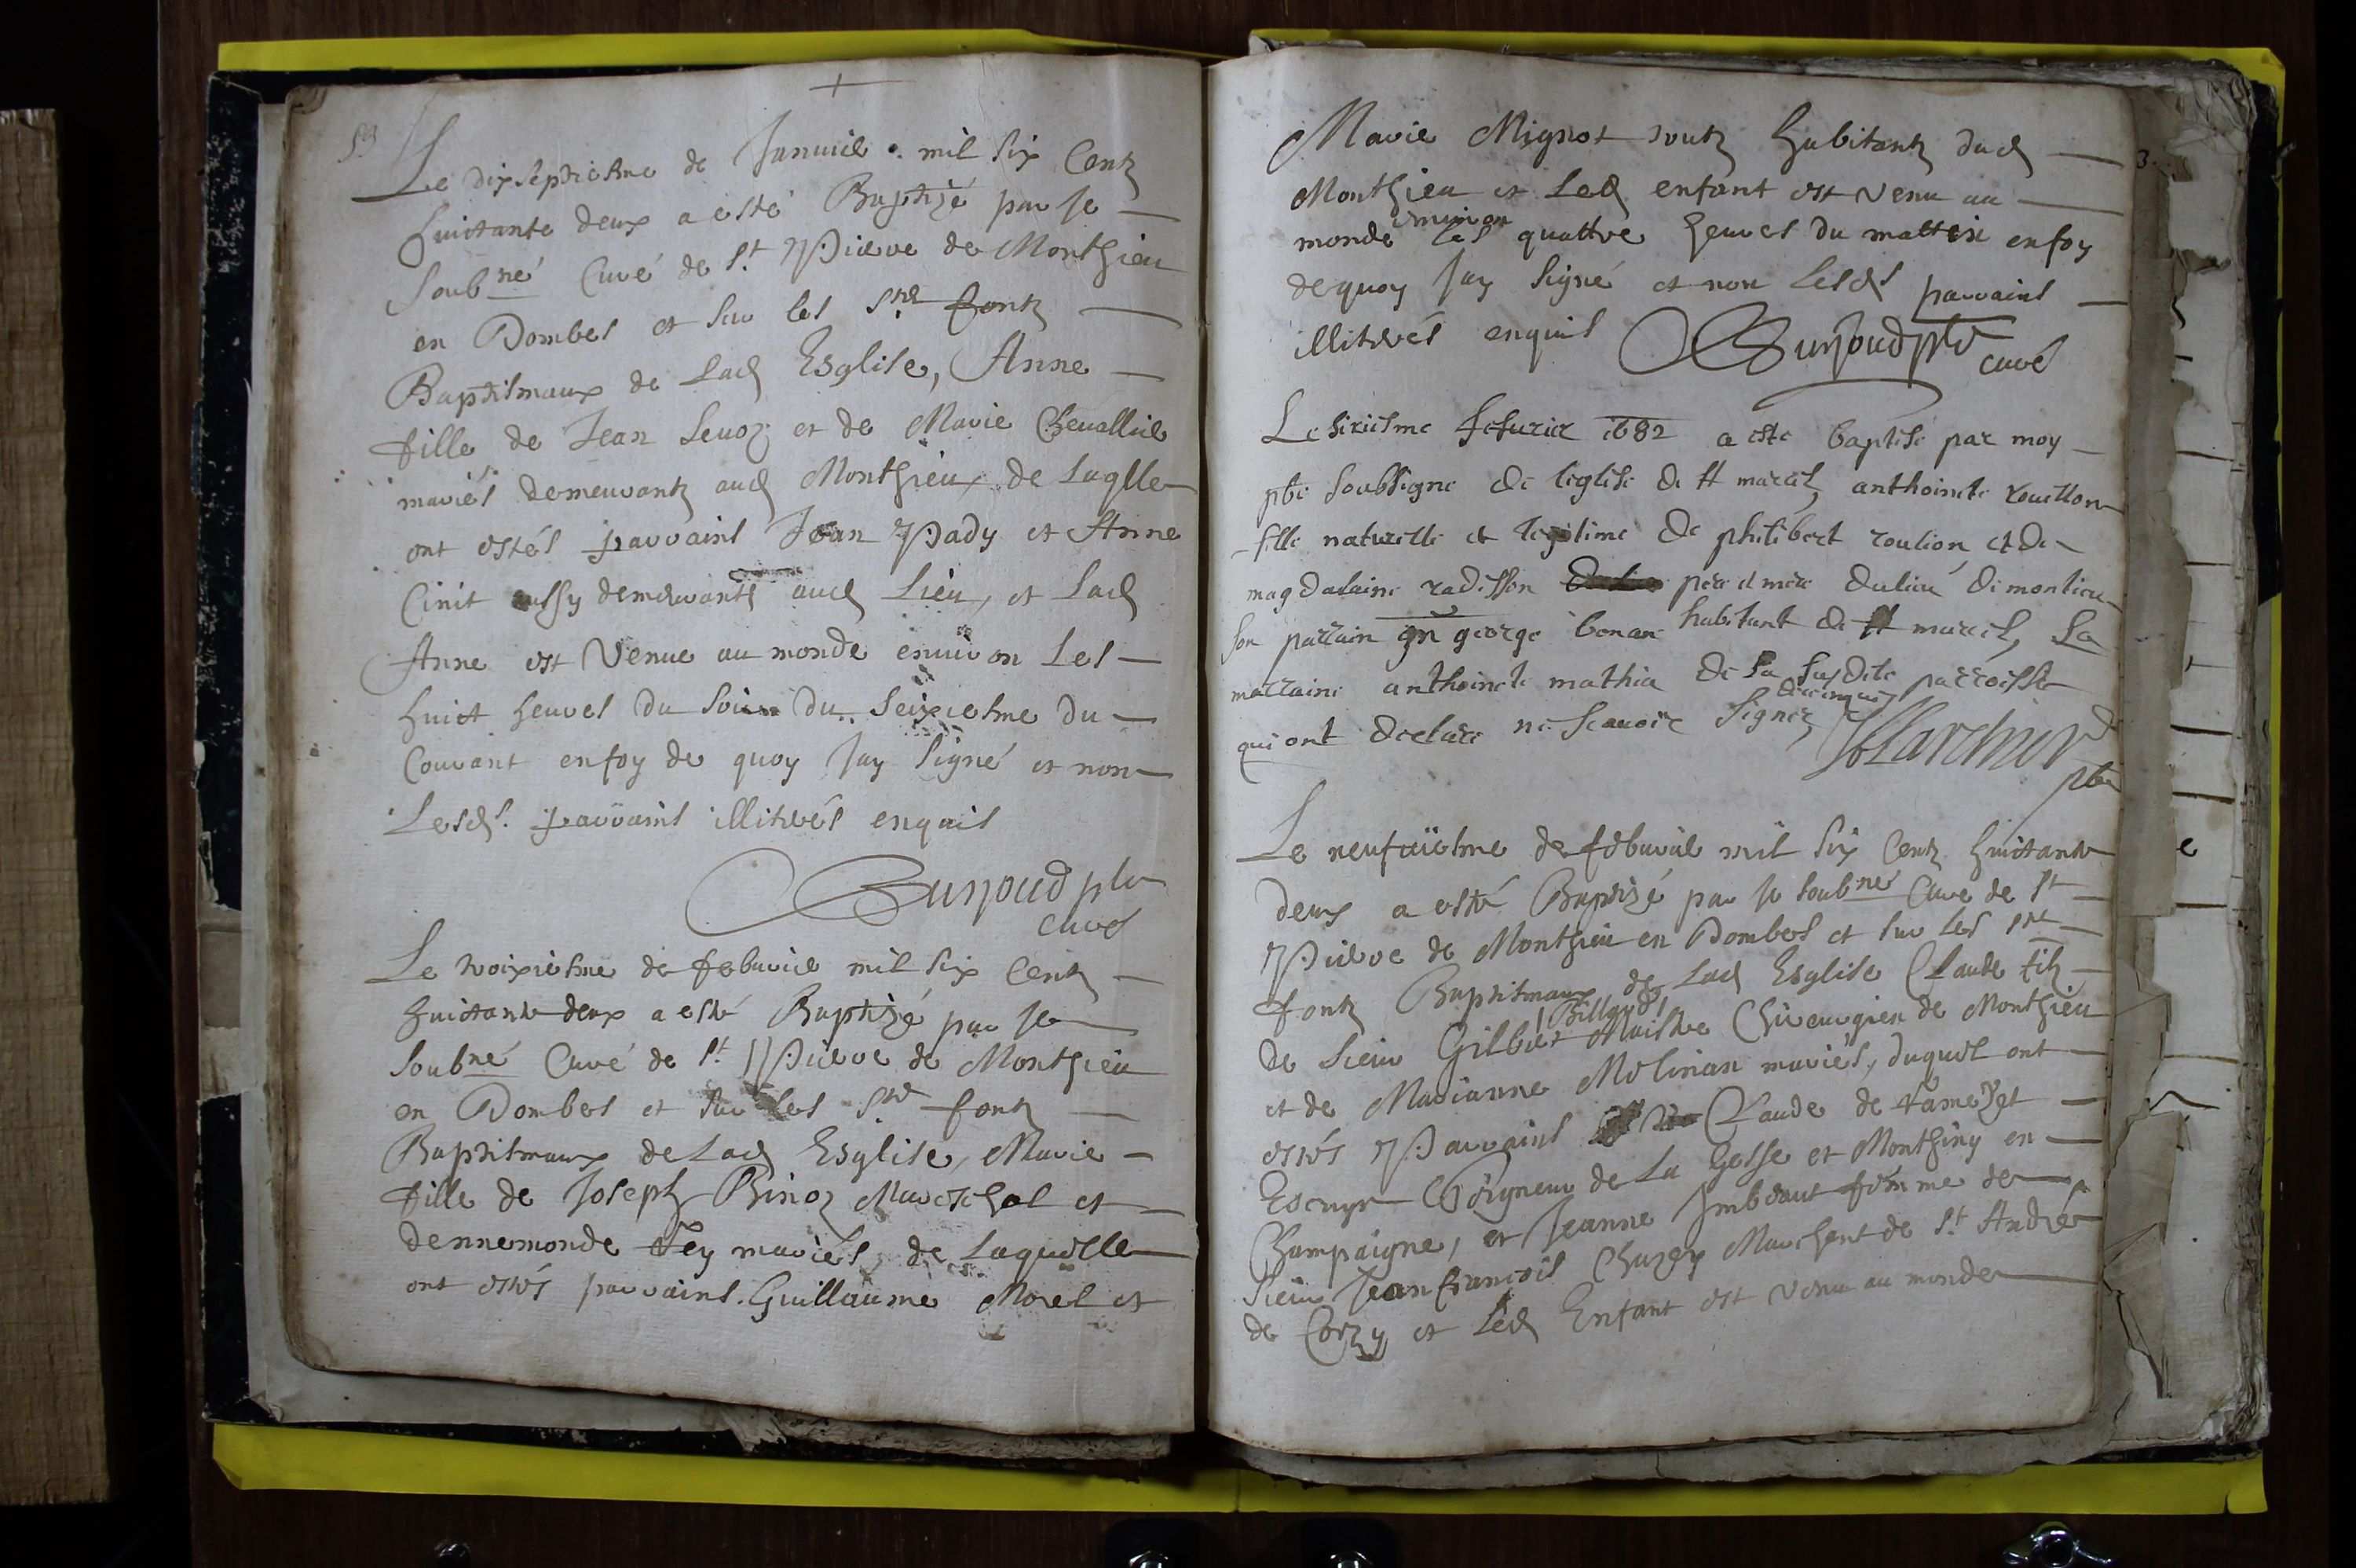 Le dixseptiesme de Januier mil six Centz
huictante deux a esté Baptizé par Je
soubné Curé de St Pierre de Monthieu
en Dombes et sur les Stes fontz
Baptismaux de Lad Esglise, Anne
fille de Jean Leuoz et de Marie Cheuallier
mariés demeurantz aud Monthieu, de Laqlle
ont estés parrains Jean Pady et Anne
Cinit aussy demeurants aud Lieu, et Lad
Anne est Venue au monde enuiron Les
huict heures du soir du seixiesme du
Courant enfoy de quoy Jay signé et non
Lesds. parrains illiterés enquis
Burjoud pbr
curé
Le troixiesme de febvrier mil six Centz
huictante deux a esté Baptizé par Je
soubné Curé de St Pierre de Monthieu
en Dombes et sur les Stes fontz
Baptismaux de Lad Esglise, Marie
fille de Joseph Binoz Mareschal et
dennemonde Fey mariés, de Laquelle
ont estés parrains Guillaume Morel et
3
Marie Mignot toutz habitantz dud
Monthieu et Led enfant est venu au
monde enuiron les quattre heures du mattin enfoy
dequoy Jay signé et non Lesds parrains
illiterés enquis Burjoud pbr curé
Le sixiesme febvrier 1682 a este baptisé par moy
pbre soubsigne de leglise de st marcel, anthoinette rouillon
fille naturelle et legitime de philibert roulion et de
magdalaine radisson pere et mere dulieu de montieu
son parrain george bonan habitant de st marcel, La
marraine anthoinette mathia de la susdite parroisse
qui ont declaré ne scauoir signer de ce enquis
pbre
Le neufuiesme de febvrier mil six Centz huictante
deux a esté Baptizé par Je soubné Curé de St
Pierre de Monthieu en Dombes et sur Les Stes
fontz Baptismaux de Lad Esglise Claude filz
de sieur Gilbert Billoud Maistre Chirurgien de Monthieu
et de Marianne Molinan mariés, duquel ont
estés Parrains Claude de Fameyet
Escuyr Seigneur de La Gesse et Monthiny en
Champaigne, et Jeanne Imbeaut femme de
sieur Jean francois Chuzey Marchent de St André
de Corzy et Led Enfant est venu au monde